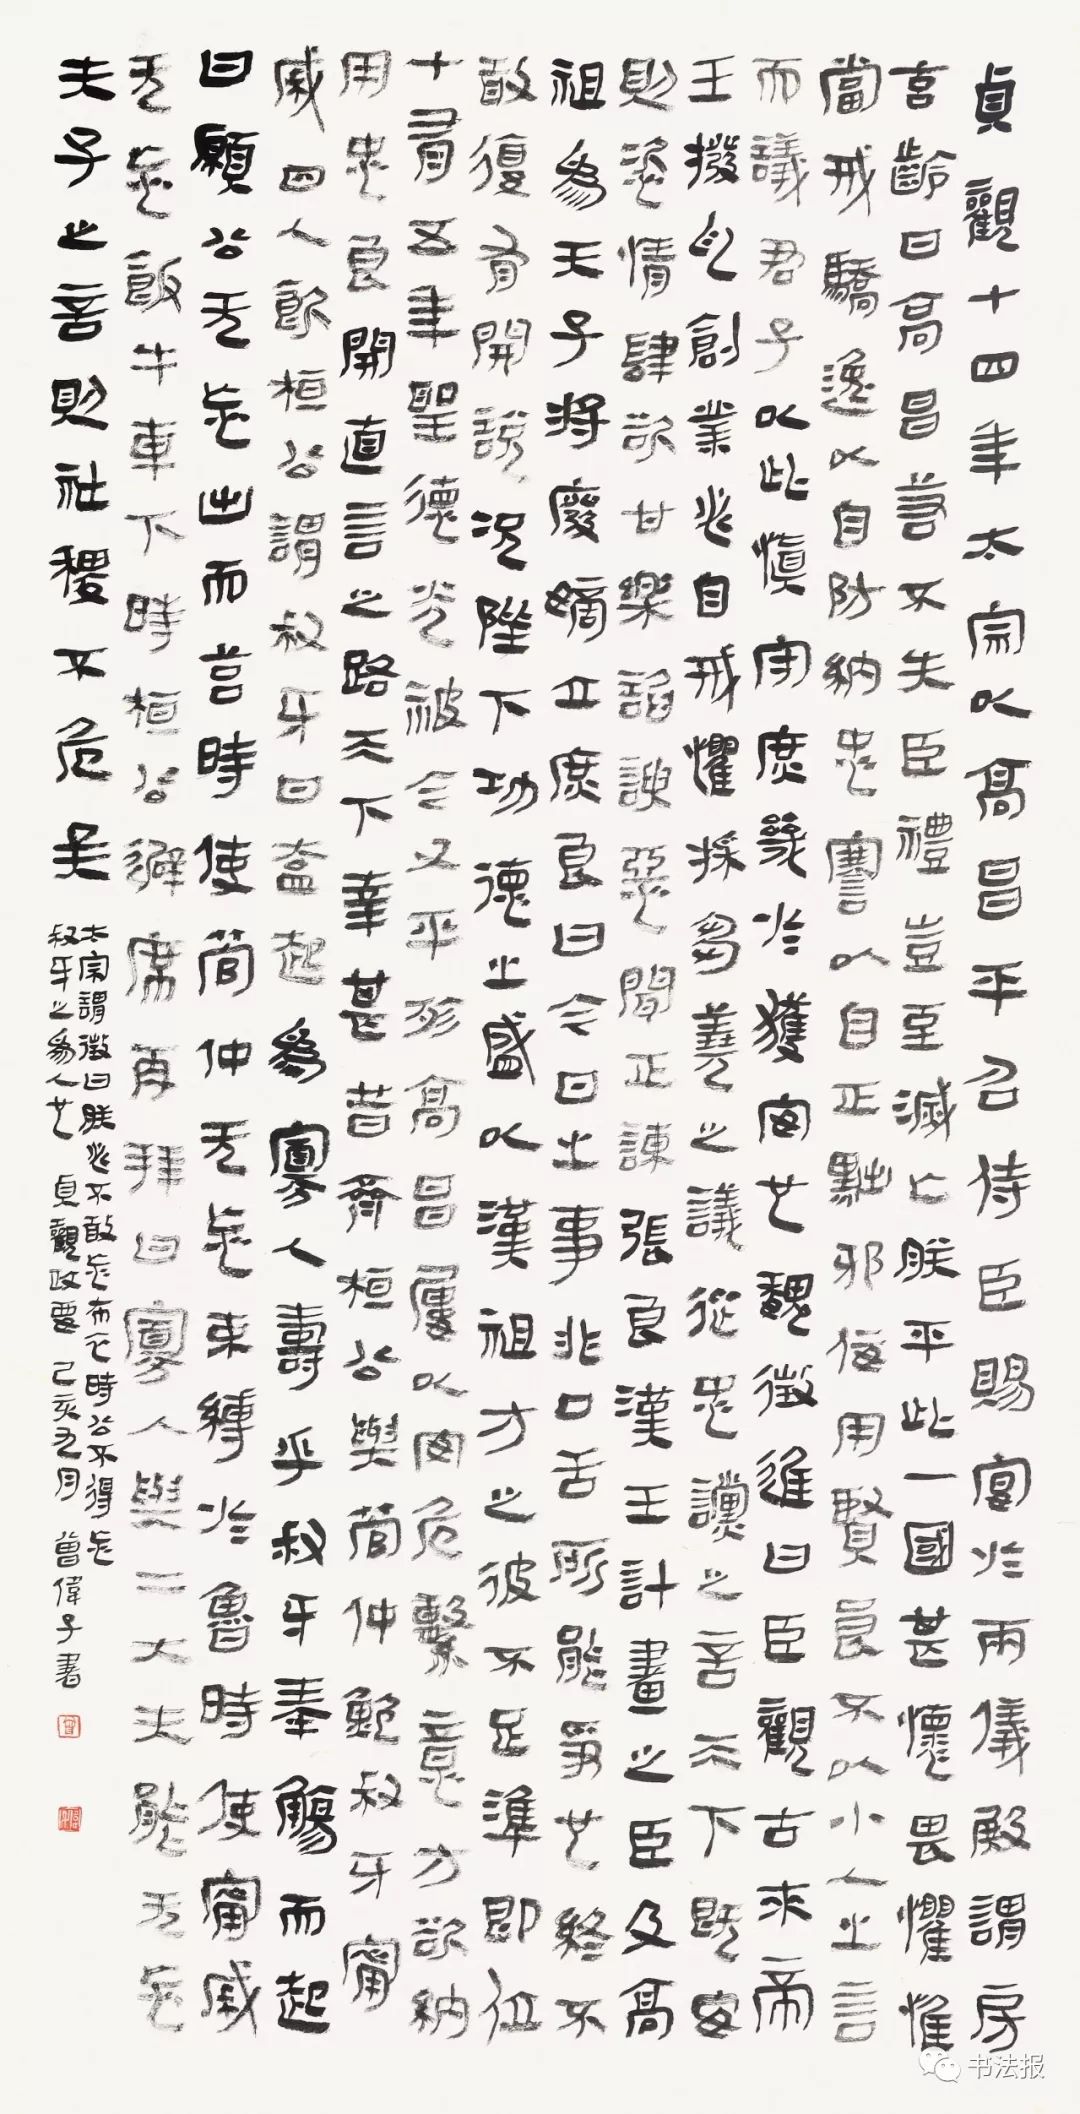 貞觀十四年太宗以高昌平召侍臣賜宴於兩儀殿謂房
玄齡曰高昌若不失臣禮豈至滅亡朕平此一國甚懷畏懼惟
當戒驕逸以自防納忠謇以自正黜邪佞用賢良不以小人之言
而議君子以此慎守庶幾於獲安也魏徵進曰臣觀古來帝
王撥亂創業必自戒懼採芻蕘之議從忠讜之言天下既安
則恣情肆欲甘樂諂諛惡聞正諫張良漢王計畫之臣及高
祖為天子將廢嫡立庶良曰今日之事非口舌所能爭也終不
敢復有開說況陛下功德之盛以漢祖方之彼不足準即位
十有五年聖德光被今又平殄高昌屢以安危繫意方欲納
用忠良開直言之路天下幸甚昔齊桓公與管仲鮑叔牙甯
戚四人飲桓公謂叔牙曰盍起為寡人壽乎叔牙奉觴而起
曰願公无忘出而在莒時使管仲无忘束縛於魯時使甯戚
无忘飯牛車下時桓公避席再拜曰寡人與二大夫能无忘
夫子之言則社稷不危矣
太宗謂徵曰朕必不敢忘布衣時公不得忘
叔牙之為人也 貞觀政要 己亥九月 曾偉子書
书法报